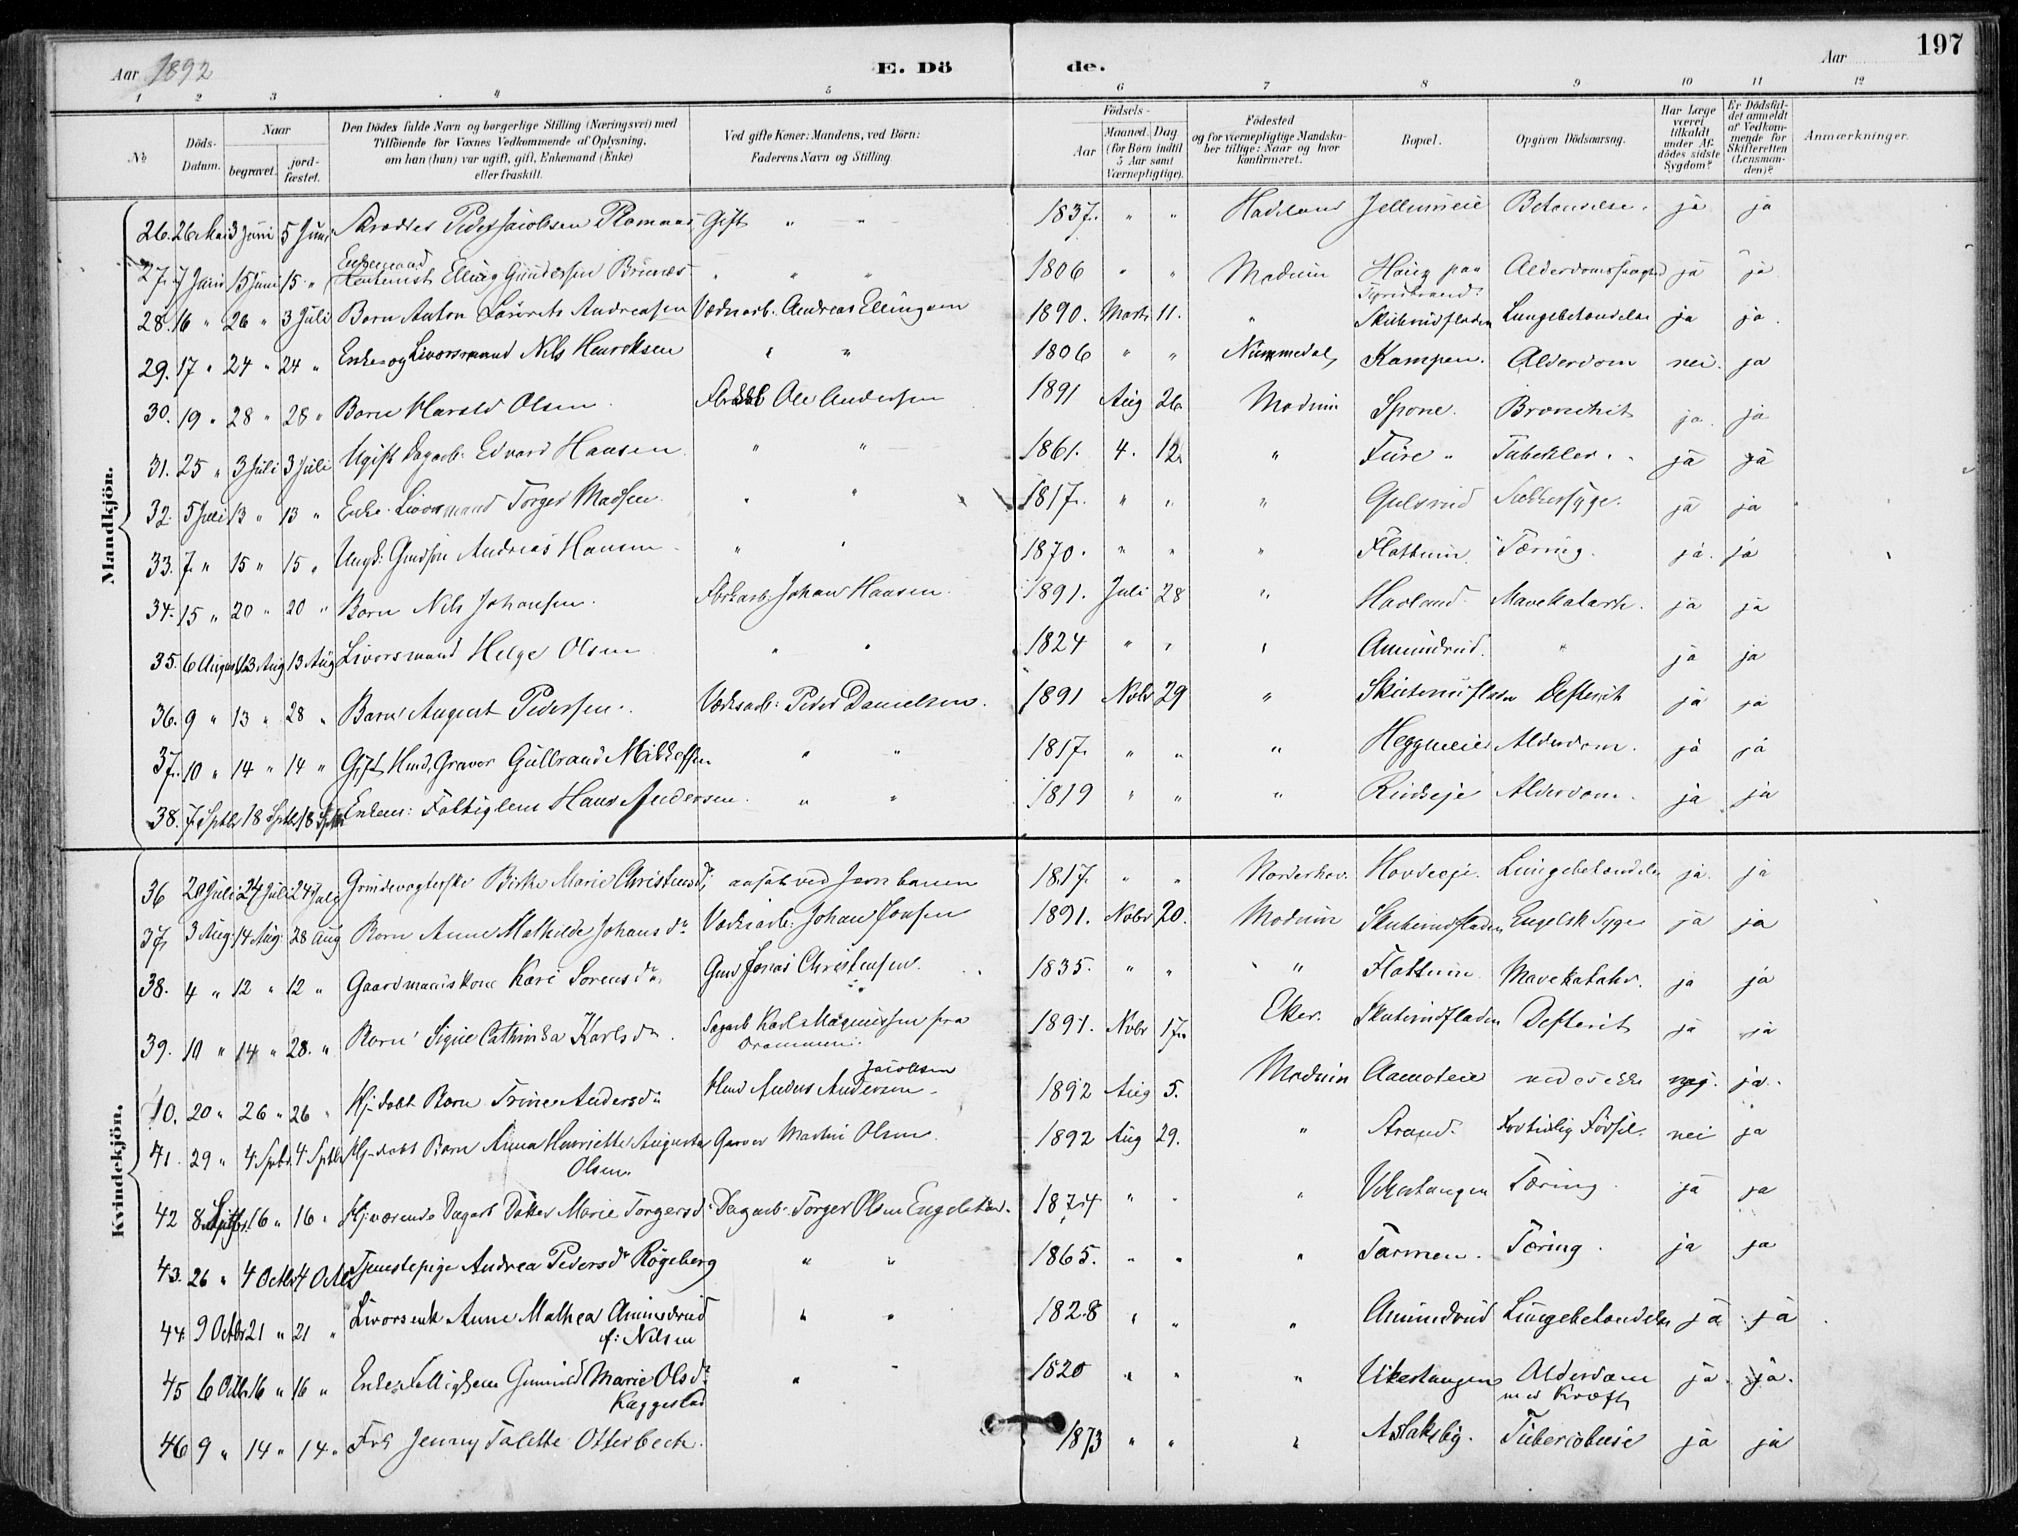 197
Aar 1892
E. Dö
de.
Aar
1 2 3 4 5 6 7 8 9 10 11 12
No
Döds-Datum.
Naar
begravet.
jordfæstet.
Den Dödes fulde Navn og borgerlige Stilling (Næringsvei) med
Tilföiende for Voxnes Vedkommende af Oplysning,
om han (hun) var ugift, gift, Enkemand (Enke)
eller fraskilt.
Ved gifte Koner: Mandens, ved Börn:
Faderens Navn og Stilling.
Födsels-
Aar
Maaned. Dag
(for Börn indtil
5 Aar samt
Værnepligtige).
Födested
og for værnepligtige Mandska-
ber tillige: Naar og hvor
konfirmeret.
Bopæl.
Opgiven Dödsaarsag.
Har Læge
været
tilkaldt
under Af-
dödes sidste
Sygdom?
Er Dödsfal-
det anmeldt
af Vedkom-
mende for
Skifteretten
(Lensman-
den)?
Anmærkninger.
Mandkjön.
26. 26 Mai 3 Juni 5 Juni Peder Jacobsen Gift " " 1837. " " Hadeland Betændelse. ja ja
27. 7 Juni 15 Juni 15 " Enkemand Elling Gundersen " " " 1806 " " Modum Haug paa Tyristrand Alderdomssvaghed ja ja
28. 16 " 26 " 3 Juli Barn Anton Laurits Andreasen Andreas Ellingsen 1890. Marts 11. " Skuterudfladen Lungebetændelse ja ja.
29. 17 " 24 " 24 " Enke og Livorsmand Nils Henriksen " " 1806 " " Nummedal, Kampen. Alderdom nei. ja
30. 19 " 28 " 28 " Barn Harald Olsen. Ole Andersen 1891 Aug 26 Modum Spone. Bronchit ja. ja
31. 25 " 3 Juli 3 Juli Ugift Dagarb. Edvard Hansen. " " 1861. 4. 12. " Fure " ja ja
32. 5 Juli 13 " 13 " Enke. Livorsmand Torger Madsen. " " 1817. " " " Gulsrud Sukkersyge. ja ja
33. 7 " 15 " 15 " Ungk. Andreas Hansen " " 1870. " " " Flattum. Tæring. ja. ja
34. 15 " 20 " 20 " Barn Nils Johansen. Johan Hansen. 1891. Juli 28 " Havland Mavekatarh. ja ja
35. 6 August 13 Aug 13 Aug Livorsmand Helge Olsen " " 1824 " " " Amundrud. " ja ja
36. 9 " 13 " 28 " Barn August Pedersen. Værksarb: Peder Danielsen. 1891 Novbr 29 " Skuterudfladen Defterit ja ja
37. 10 " 14 " 14 " Gift Hmd, Graver Gulbrand Mikkelsen " " 1817. " " " Heggmeie Alderdom. ja ja
38. 7 Septbr 18 Septbr 18 Septbr Enkem: Fattiglem Hans Andersen. " " 1819 " " " Rudseje Alderdom. ja ja
Kvindekjön.
36 20 Juli 24 Juli 24 July Grindevogterske Birthe Marie Christensd. ansat ved Jernbanen 1817. " " Norderhov. Hovdeeje. Lungebetændelse ja. ja
37. 3 Aug. 14 Aug. 28 Aug Barn Anne Mathilde Johansd. Værksarb: Johan Jonsen 1891. Novbr 20. Modum Skuterudfladen Engelsk Syge ja ja
38. 4 " 12 " 12 " Gaardmandskone Kari Sorensd. Gmd Jonas Christensen. 1835. " " " Flattum Mavekatahr. ja ja
39. 10 " 14 " 28. " Barn Signe Cathinka Karlsd. Sagarb Karl Magnussen fra Drammen. 1891. Novbr 17. Eker. Skuterudfladen Defterit ja ja
40. 20 " 26 " 26 " Hj.dobt Barn Trine Andersd. Hmd Anders Andersen Jacobsen 1892 Aug 5. Modum Aamoteie vides ikke nej. ja.
41. 29 " 4 Septbr. 4 Septbr Hj.dobt Barn Anna Henriette Augusta Olsen. Garver Martin Olsen. 1892 Aug 29. " Strand. Fortidlig Födsel. nei ja
42 8 Septbr. 16 " 16 " Hj.værende Dagarb Datter Marie Torgersd. Dagarb. Torger Olsen 1874 " " " Vikertangen Tæring. ja ja
43. 26 " 4 Octbr 4 Octbr Tjenestepige Andrea Pedersd. Rögeberg " " 1865. " " " Tæring. ja ja
44. 9 Octbr 21 " 21 " Livorsenk Anne Mathea Amundrud f: Nilsen " " 1828 " " " Amundrud Lungebetændelse ja ja
45 6 Octbr 16 " 16 " Enke Fattiglem Gunnild Marie Olsd. Kaggestad " " 1820 " " " Vikertangen Alderdom med Kræft ja. ja.
46 9 " 14 " 14. " Frk Jenny Talette Otterbech. 1873 " " " Aslaksby. Tuberculose ja ja